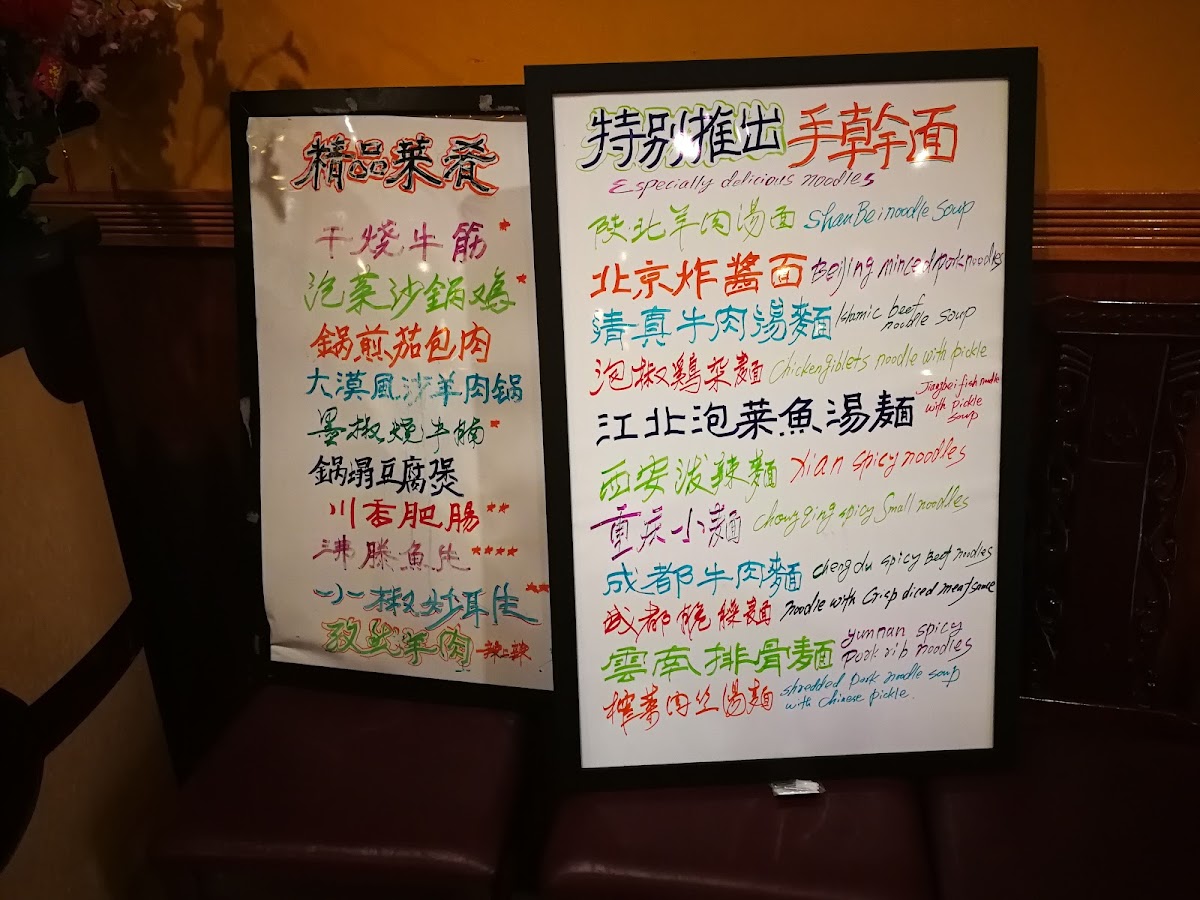 精品菜肴
干烧牛筋 *
泡菜沙鍋鸡 *
鍋煎茄包肉
大漠風沙羊肉锅
墨椒燒牛腩 *
鍋塌豆腐煲
川香肥腸 **
沸滕魚片 ****
小椒炒耳片 **
孜然羊肉 辣上辣
特别推出 手幹面
Especially delicious noodles
陕北羊肉湯面 ShanBei noodle soup
北京炸醬面 Beijing minced pork noodles
清真牛肉湯麵 Islamic beef noodle soup
泡椒鷄架麵 Chicken giblets noodle with pickle
江北泡菜魚湯麵 Jiangbei fish noodle with pickle soup
西安泼辣麵 Xian spicy noodles
重庆小麵 chongqing spicy small noodles
成都牛肉麵 chengdu spicy Beef noodles
成都脆臊麵 noodle with crisp diced meat sauce
雲南排骨麵 yunnan spicy pork rib noodles
榨菜肉丝湯麵 shredded pork noodle soup with chinese pickle.